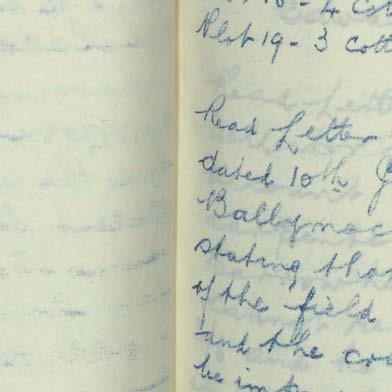 - 4 Cott
Plot 19 - 3 Cott
Read Letter
dated 10th
Ballymac
stating that
of the field
and the cro
be in